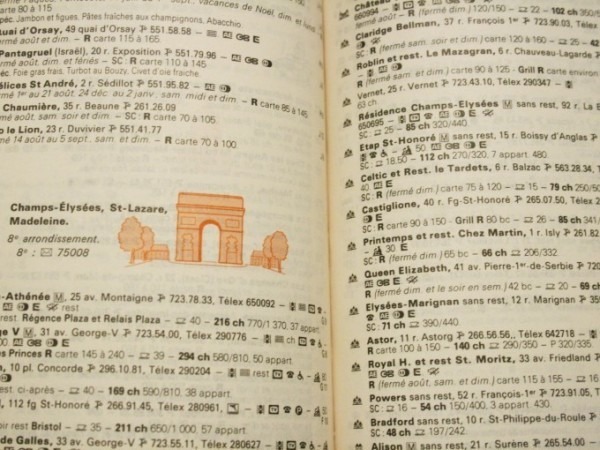 carte 80 à 115
péc. Jambon et figues. Pâtes fraîches aux champignons, Abacchio.
uai d'Orsay, 49 quai d'Orsay 551.58.58 AE E
fermé août - R carte 115 à 165.
Pantagruel (Israël), 20 r. Exposition 551.79.96
fermé août, dim. et fériés - SC : R carte 110 à 145
péc. Foie gras frais, Turbot au Bouzy, Civet d'oie fraiche
élices St André, 2 r. Sédillot 551.95.82 - AE
fermé 1er au 21 août, 24 déc. au 2 janv., sam. midi et dim. - R carte 85 à 145.
Chaumière, 35 r. Beaune 261.26.09
fermé août, sam. soir et dim. - SC : R carte 70 à 105.
o le Lion, 23 r. Duvivier 551.41.77
fermé 14 août au 5 sept., sam. et dim. - R carte 70 à 100.
Champs-Élysées, St-Lazare,
Madeleine.
8e arrondissement.
8e : 75008
-Athénée M, 25 av. Montaigne 723.78.33, Télex 650092 -
rest Régence Plaza et Relais Plaza - 40 - 216 ch 770/1 370, 37 appart.
e V M, 31 av. George-V 723.54.00, Télex 290776 -
es Princes R carte 145 à 240 - 39 - 294 ch 580/810, 50 appart.
n, 10 pl. Concorde 296.10.81, Télex 290204 - rest
est. ci-après - 40 - 169 ch 590/810, 38 appart.
l, 112 fg St-Honoré 266.91.45, Télex 280961,
oir rest Bristol - 35 - 211 ch 650/1 000, 57 appart.
de Galles, 33 av. George-V 723.55.11, Télex 280627
Château
660994 - (fermé dim.) 120/150 - 22 - 102 ch 350/
Claridge Bellman, 37 r. François 1er 723.90.03, Télex
R (fermé sam. soir et dim.) carte 120 à 160 - 25 - 42
Roblin et rest. Le Mazagran, 6 r. Chauveau-Lagarde
AE E
R (fermé août, sam. et dim.) carte 90 à 125 - Grill R carte environ
Vernet, 25 r. Vernet 723.43.10, Télex 290347 -
63 ch
Résidence Champs-Elysées M sans rest, 92 r. La B
650695 - AE E
SC : 25 - 85 ch 320/440
Etap St-Honoré M sans rest, 15 r. Boissy d'Anglas
SC : 18.50 - 112 ch 270/320, 7 appart. 480.
Celtic et Rest. le Tardets, 6 r. Balzac 563.28.34,
40 AE E
R (fermé dim.) carte 75 à 120 - 15 - 79 ch 250/
Castiglione, 40 r. Fg-St-Honoré 265.07.50, Télex
SC : R carte 90 à 150 - Grill R 80 bc - 26 - 85 ch 341/
Printemps et rest. Chez Martin, 1 r. Isly 261.82
- 30 E
R (fermé dim.) 65 bc - 66 ch 206/332
Queen Elizabeth, 41 av. Pierre-1er-de-Serbie 720
AE E
R (fermé août, dim. et le soir en sem.) 42 bc - 20 - 69 ch
Elysées-Marignan sans rest, 12 r. Marignan 359
AE E
SC : 71 ch 390/440
Astor, 11 r. Astorg 266.56.56, Télex 642718 -
R carte 100 à 150 - 140 ch 290/350 - P 320/335
Royal H. et rest St. Moritz, 33 av. Friedland
AE E
R (fermé août, sam. et dim.) carte 115 à 155 - 16
Powers sans rest, 52 r. François-1er 723.91.05,
SC : 16 - 54 ch 150/400, 3 appart. 430.
Bradford sans rest, 10 r. St-Philippe-du-Roule
SC : 48 ch 197/242.
Alison M sans rest, 21 r. Surène 265.54.00 -